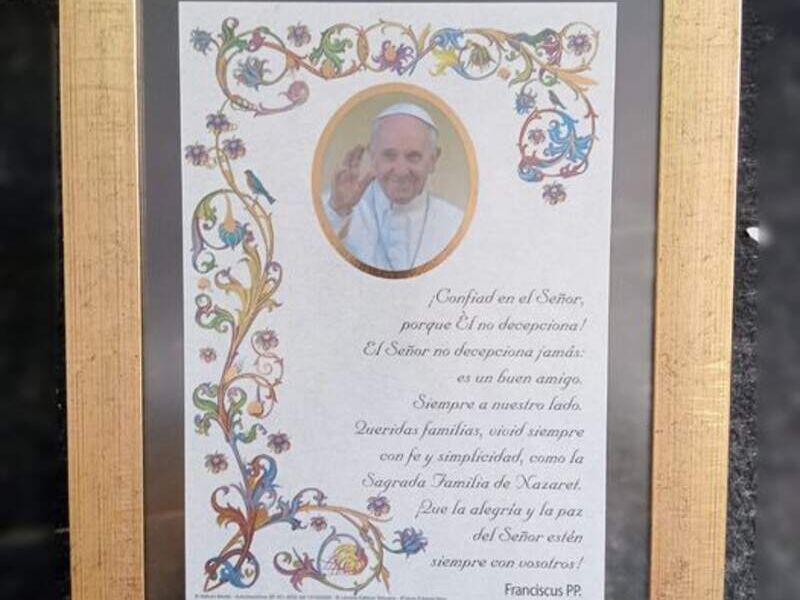 ¡Confiad en el Señor,
porque Èl no decepciona!
El Señor no decepciona jamás:
es un buen amigo.
Siempre a nuestro lado.
Queridas familias, vivid siempre
con fe y simplicidad, como la
Sagrada Familia de Nazaret.
¡Que la alegría y la paz
del Señor estén
siempre con vosotros!
Franciscus PP.